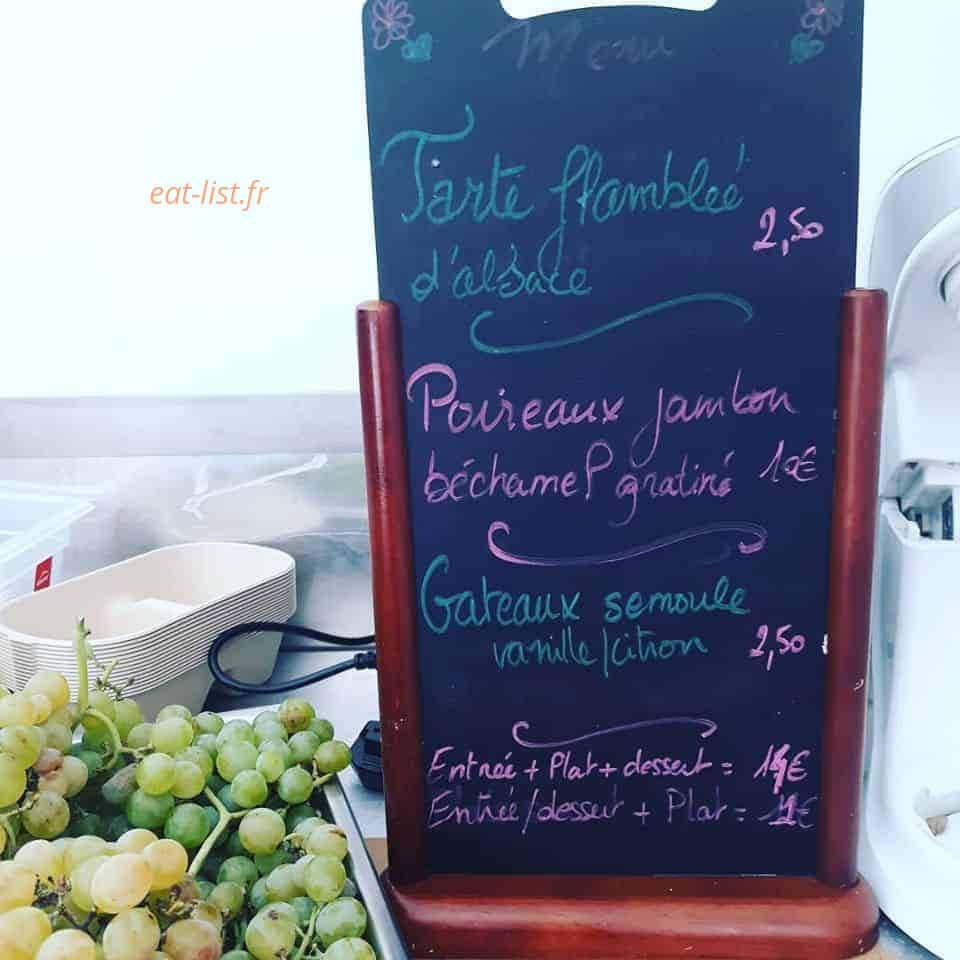 Menu
eat-list.fr
Tarte flambléé
2,50
d'alsace
Poireaux jambon
béchamel gratiné 10€
Gateaux semoule
vanille/citron 2,50
Entrée + Plat + dessert = 14€
Entrée/dessert + Plat =